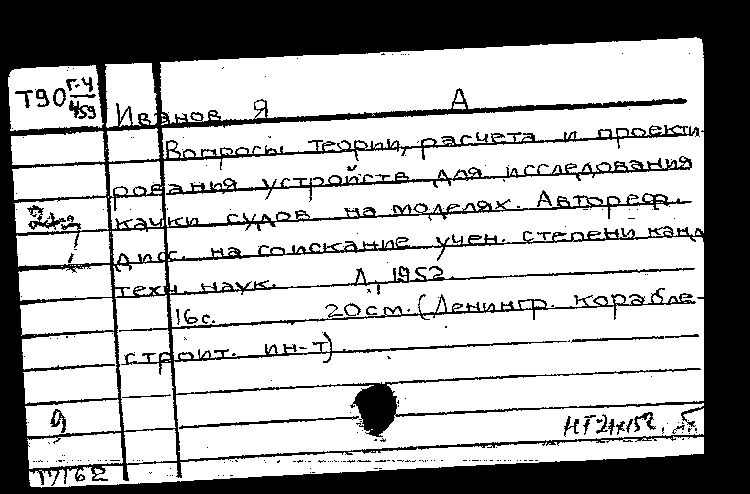 Т90 Г-4/459
Иванов Я А
Вопросы теории, расчета и проекти-
рования устройств для исследования
качки судов на моделях. Автореф.
дисс. на соискание учен. степени канд
техн. наук. Л, 1952.
16с. 20см. (Ленингр. корабле-
строит. ин-т)
9